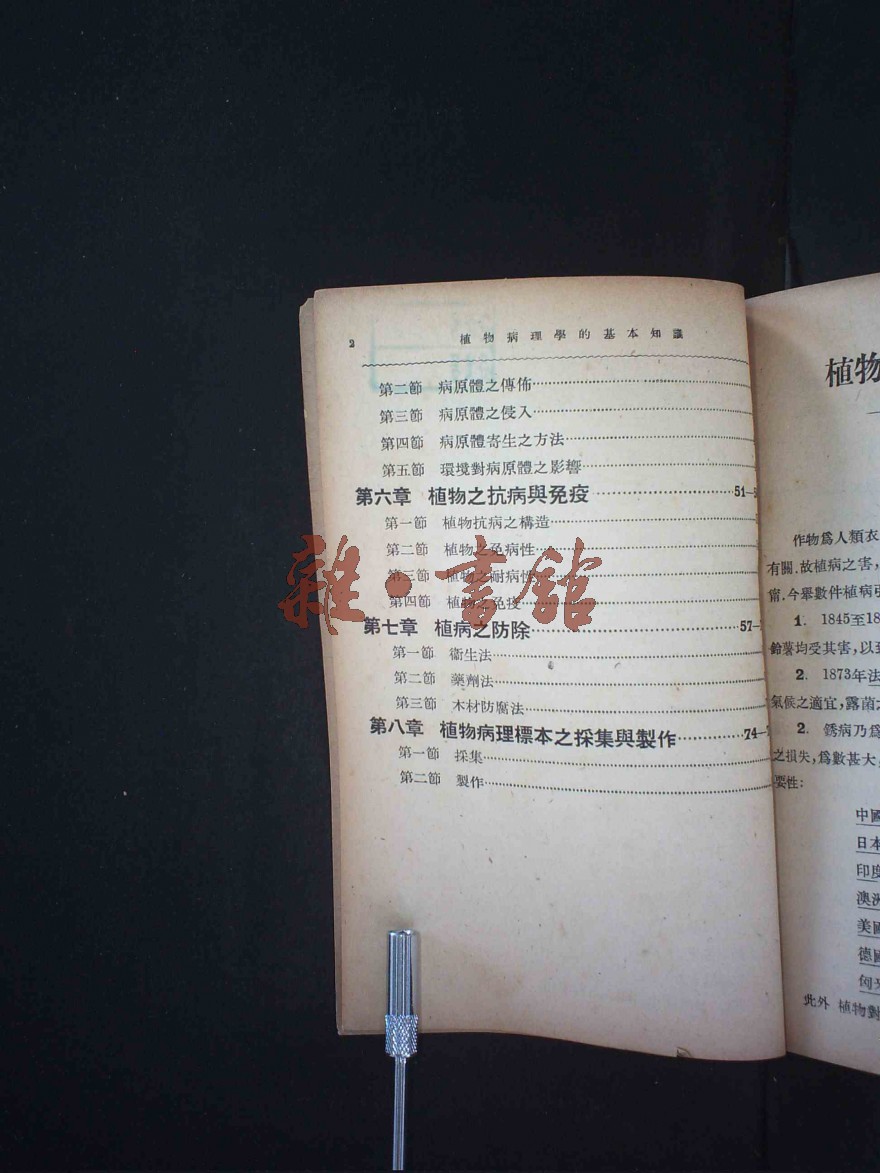 2 植物病理學的基本知識
第二節 病原體之傳佈
第三節 病原體之侵入
第四節 病原體寄生之方法
第五節 環境對病原體之影響
第六章 植物之抗病與免疫 51—
第一節 植物抗病之構造
第二節 植物之免病性
第三節 植物之耐病性
第四節 植物之免疫
第七章 植病之防除 57—
第一節 衞生法
第二節 藥劑法
第三節 木材防腐法
第八章 植物病理標本之採集與製作 74—
第一節 採集
第二節 製作
雜·書館
植物
作物爲人類衣
有關.故植病之害,
甯.今舉數件植病
1. 1845至18
鈴薯均受其害,以
2. 1873年法
氣候之適宜,露菌
2. 銹病乃爲
之損失,爲數甚大,
要性:
中國
日本
印度
澳洲
美國
德國
匈牙
此外 植物對